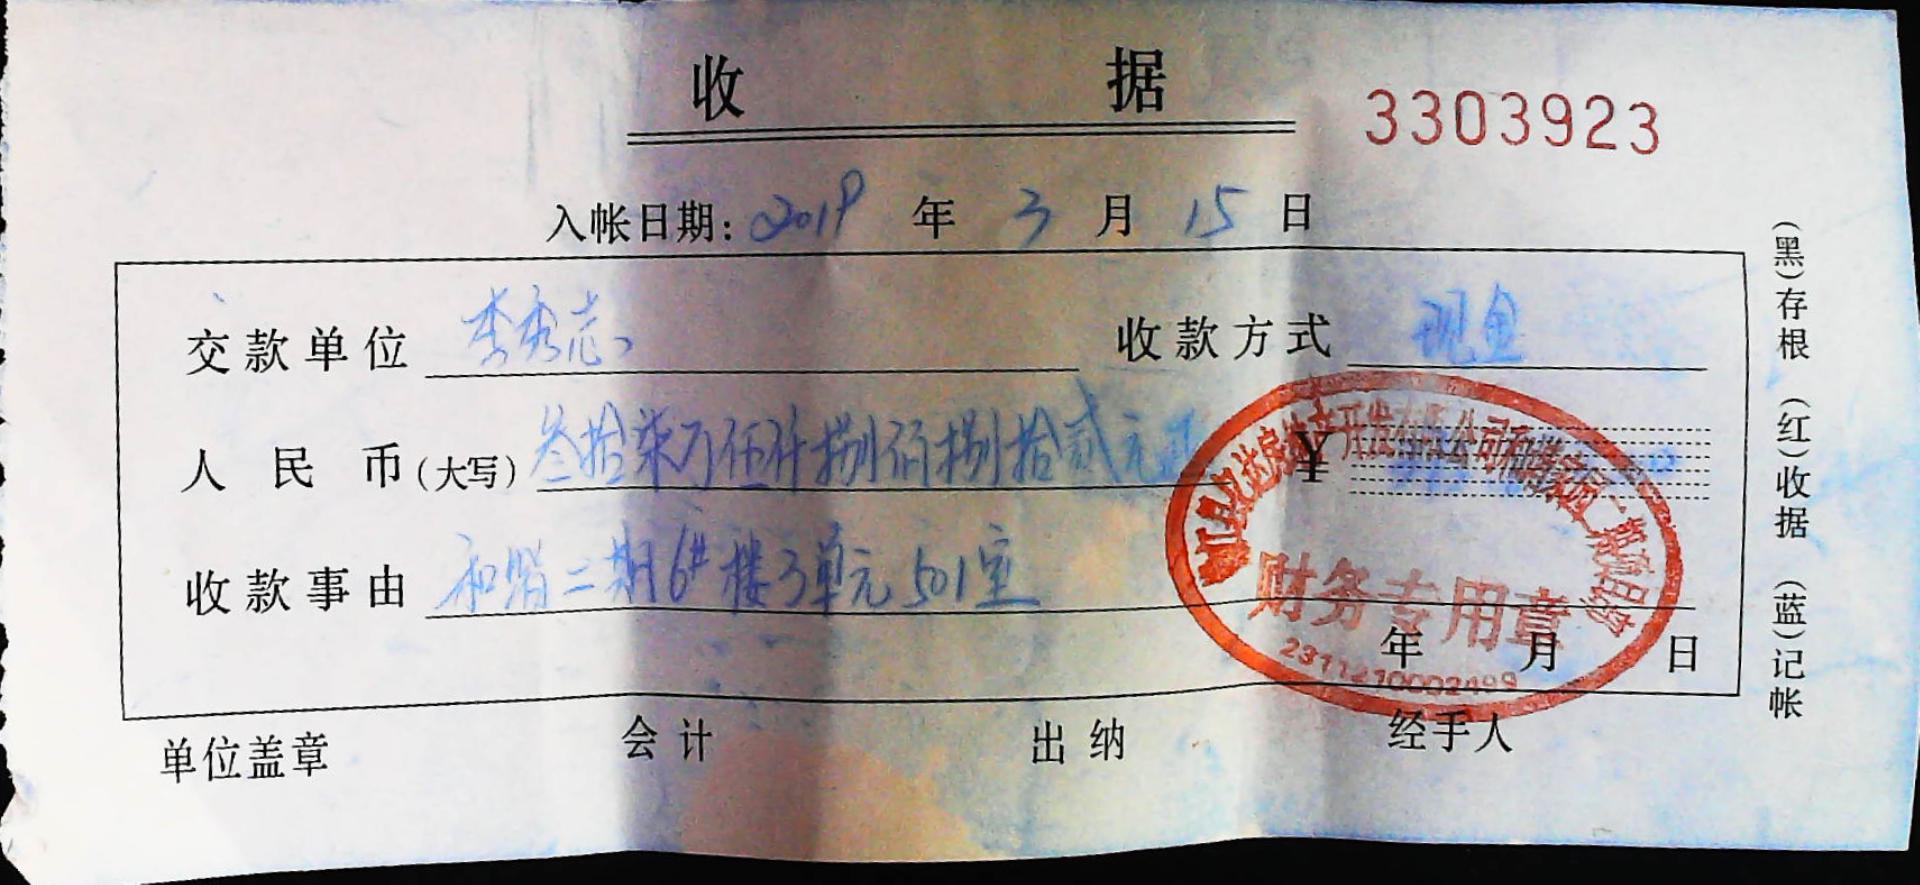 收 据
3303923
入帐日期: 2019 年 3 月 15 日
交款单位 李秀志 收款方式 现金
人民币(大写) 叁拾柒万伍仟捌佰捌拾贰元正 ¥
收款事由 和谐二期6#楼3单元501室
年 月 日
财务专用章
2311210002499
单位盖章 会计 出纳 经手人
(黑)存根 (红)收据 (蓝)记帐